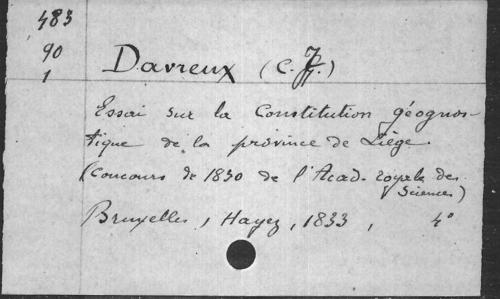 483
90
1
Davreux (C. J.)
Essai sur la Constitution géognos-
tique de la province de Liège.
(Concours de 1830 de l'Acad. royale des
Sciences)
Bruxelles, Hayez, 1833, 4°